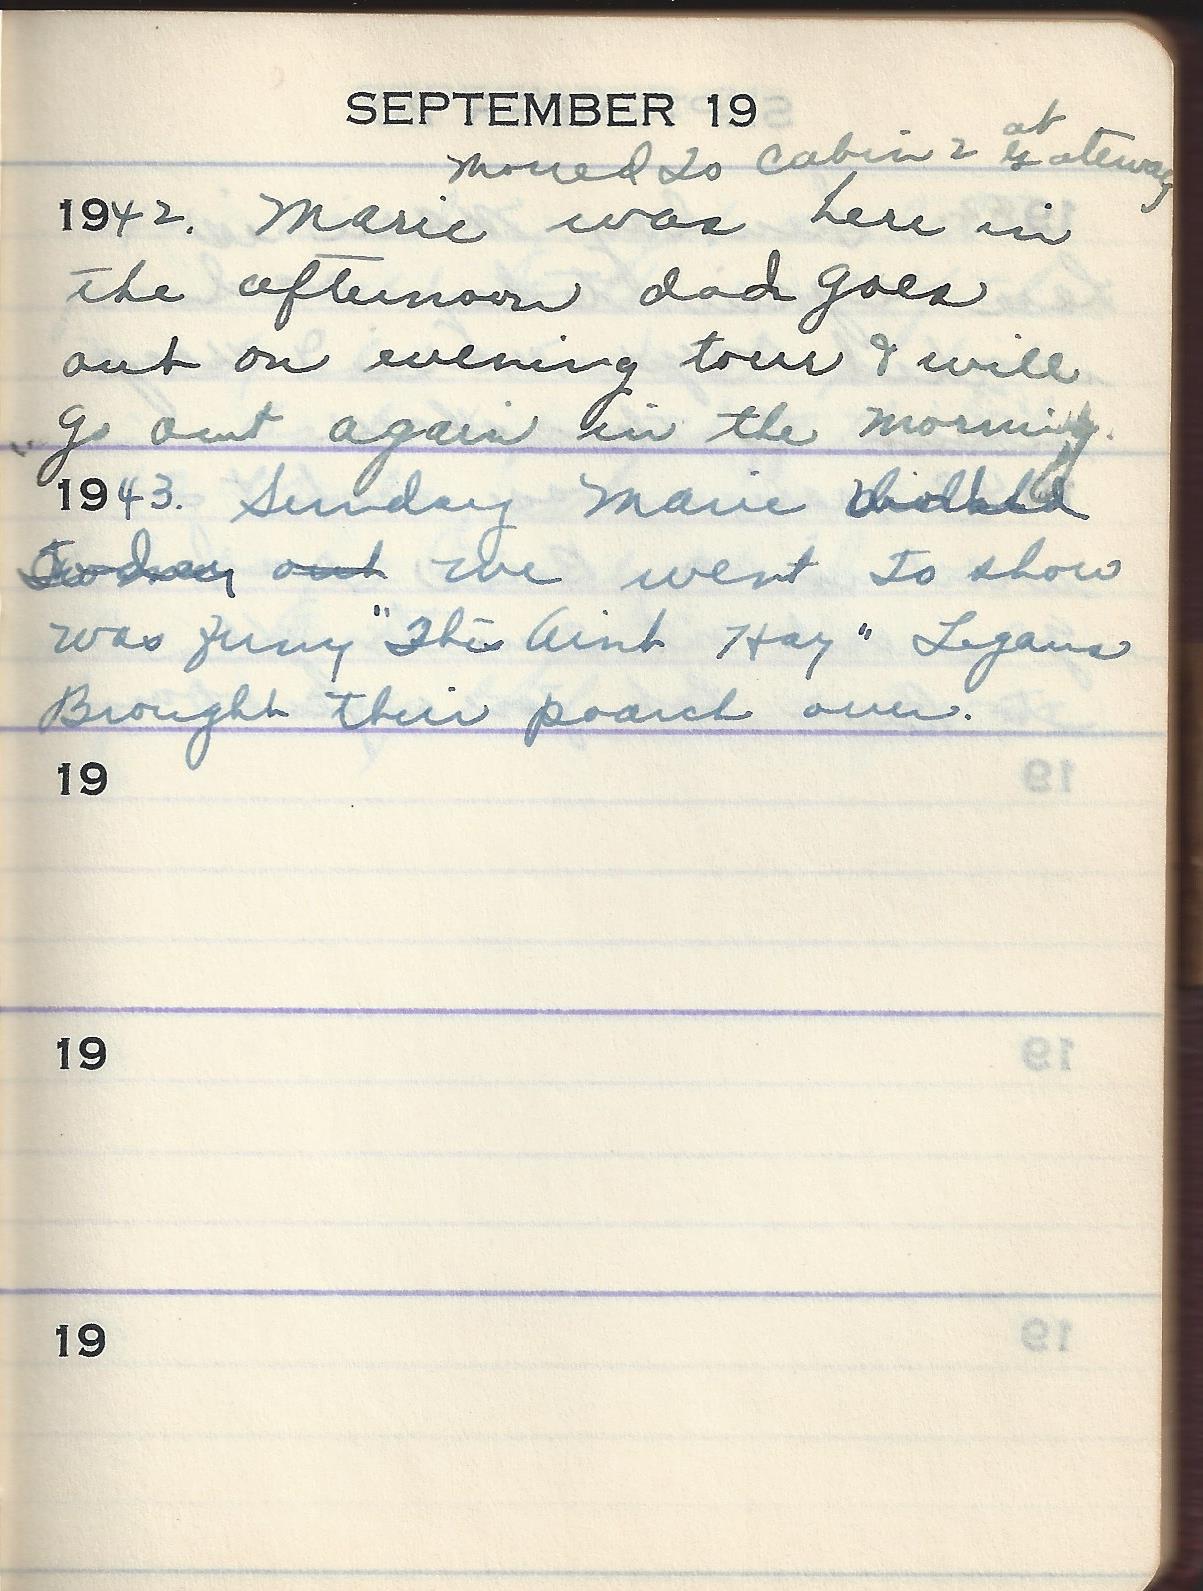 SEPTEMBER 19
moved to Cabin 2 at Gateway
1942. Marie was here in
the afternoon dad goes
out on evening tour & will
go out again in the morning.
1943. Sunday Marie
today out we went to show
was funy "It Aint Hay" Legans
Brought their poarch over.
19
19
19